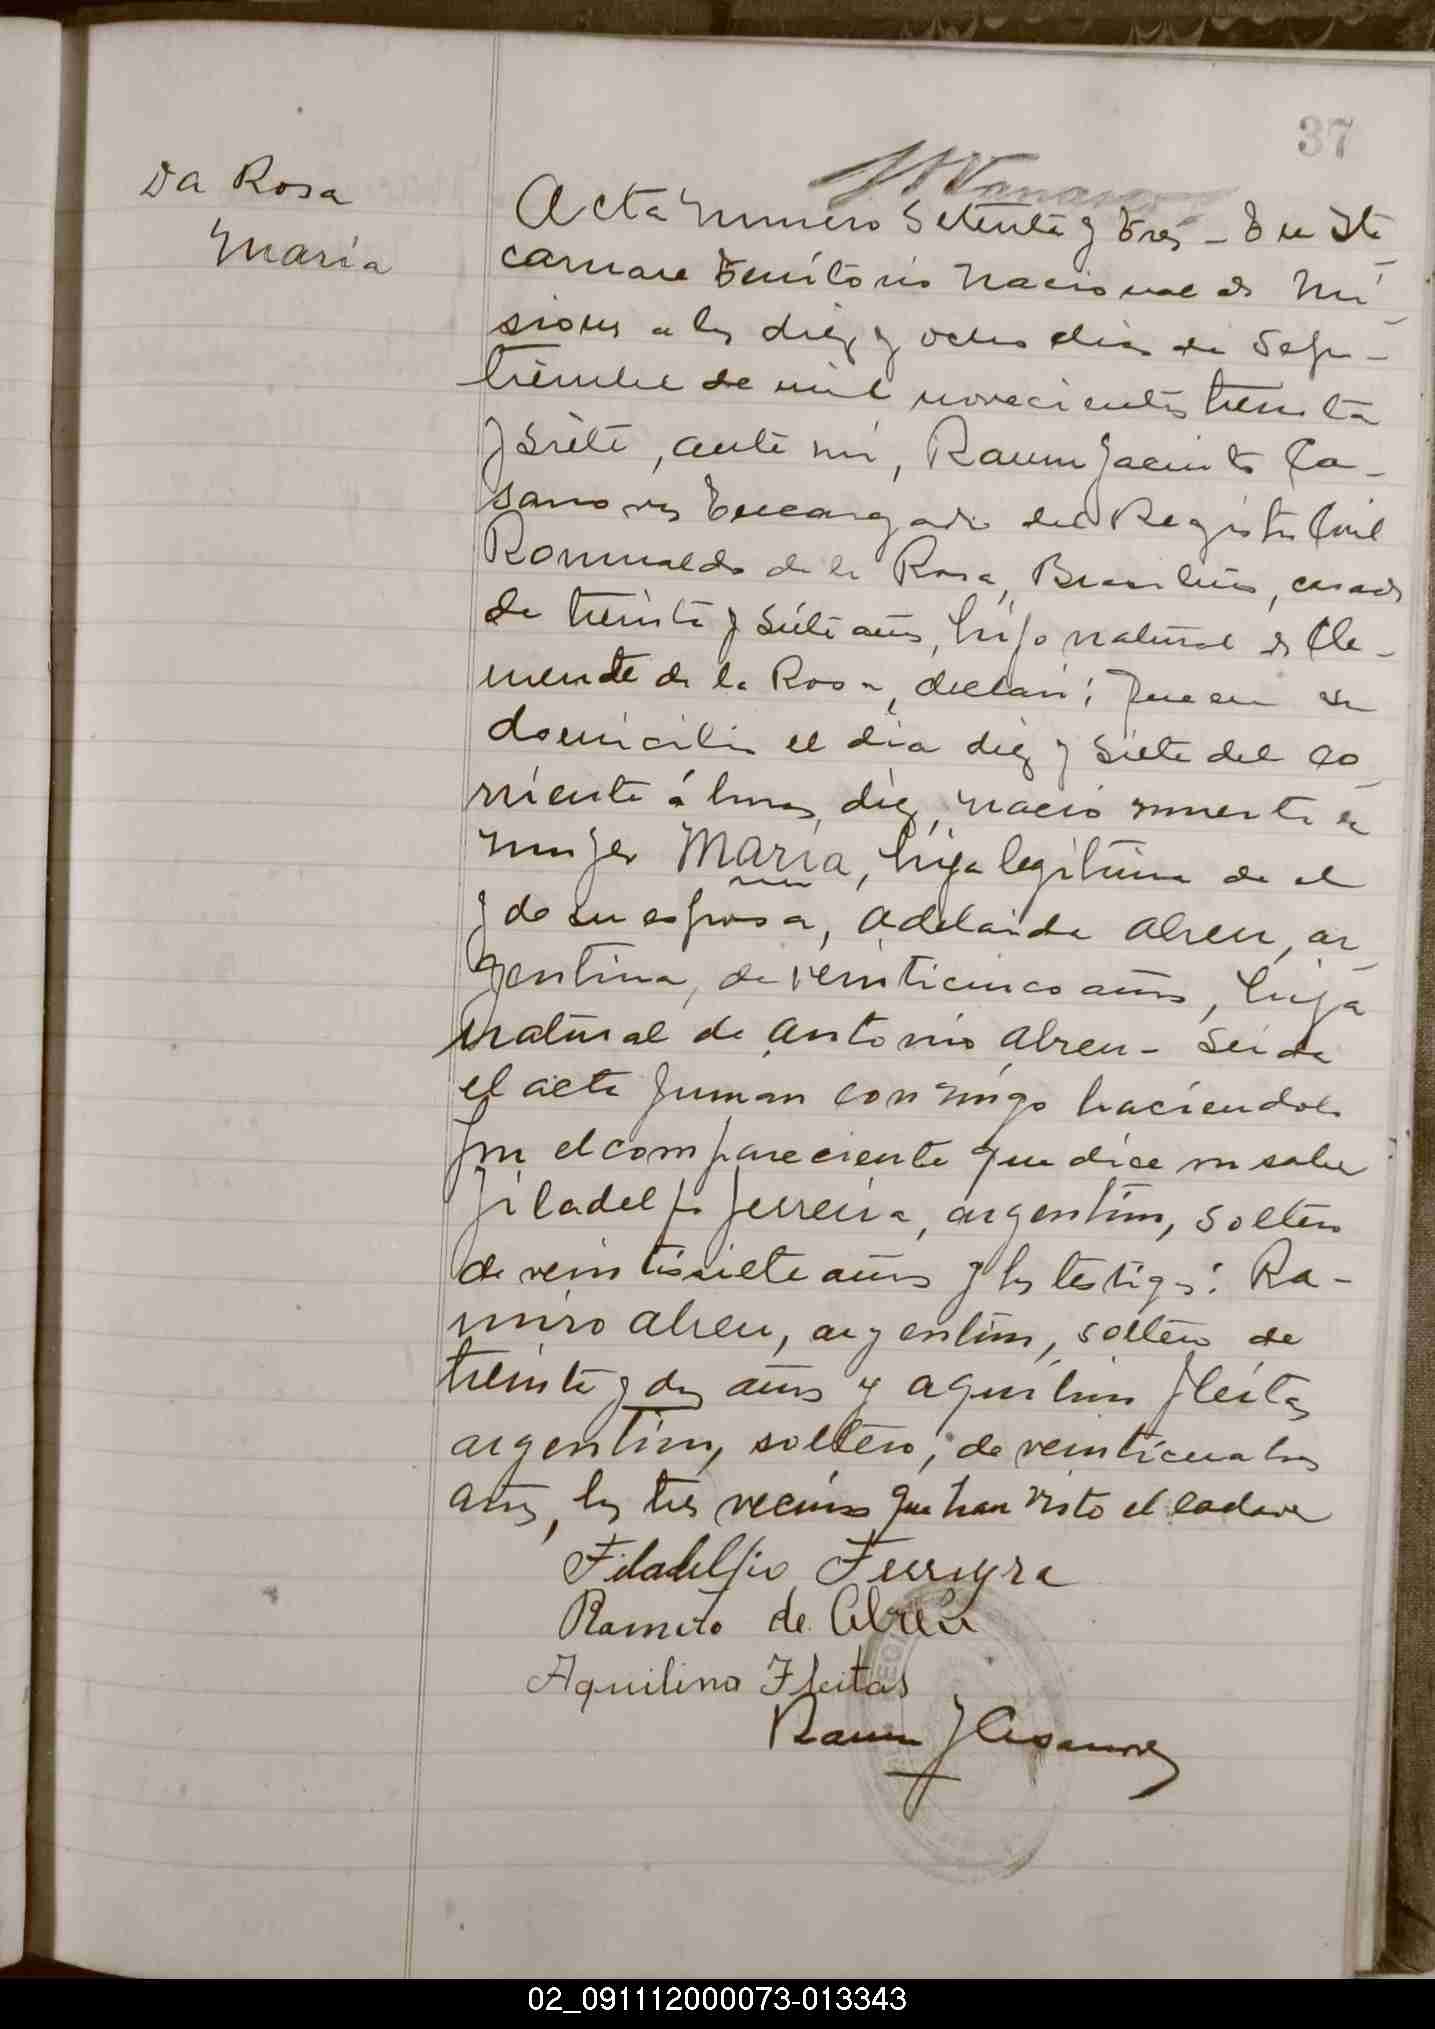 37
Da Rosa
Maria
Acta numero setenta y tres - En Ita
caruare Territorio Nacional de Mi
siones a los diez y ocho dias de Sep-
tiembre de mil novecientos treinta
y siete, ante mi, Ramon Jacinto Ca-
sanoves Encargado del Registro Civil
Romualdo de la Rosa, Brasileño, casado
de treinta y siete años, hijo natural de Cle-
mente de la Rosa, declaró: Que en su
domicilio el dia diez y siete del co
rriente á horas, diez, nació muerta la
mujer Maria, hija legitima de el
y de su esposa, Adelaida Abreu, ar
gentina, de veinticinco años, hija
natural de Antonio Abreu - Leida
el acta firman conmigo haciendolo
por el compareciente que dice no saber
Filadelfo Ferreira, argentino, soltero
de veintisiete años y los testigos: Ra-
miro Abreu, argentino, soltero de
treinta y dos años y Aquilino Fleitas
argentino, soltero, de veinticuatro
años, los tres vecinos que han visto el cadaver
Filadelfio Ferreyra
Ramiro de Abreu
Aquilino Fleitas
Ramon J Casanoves
02_091112000073-013343